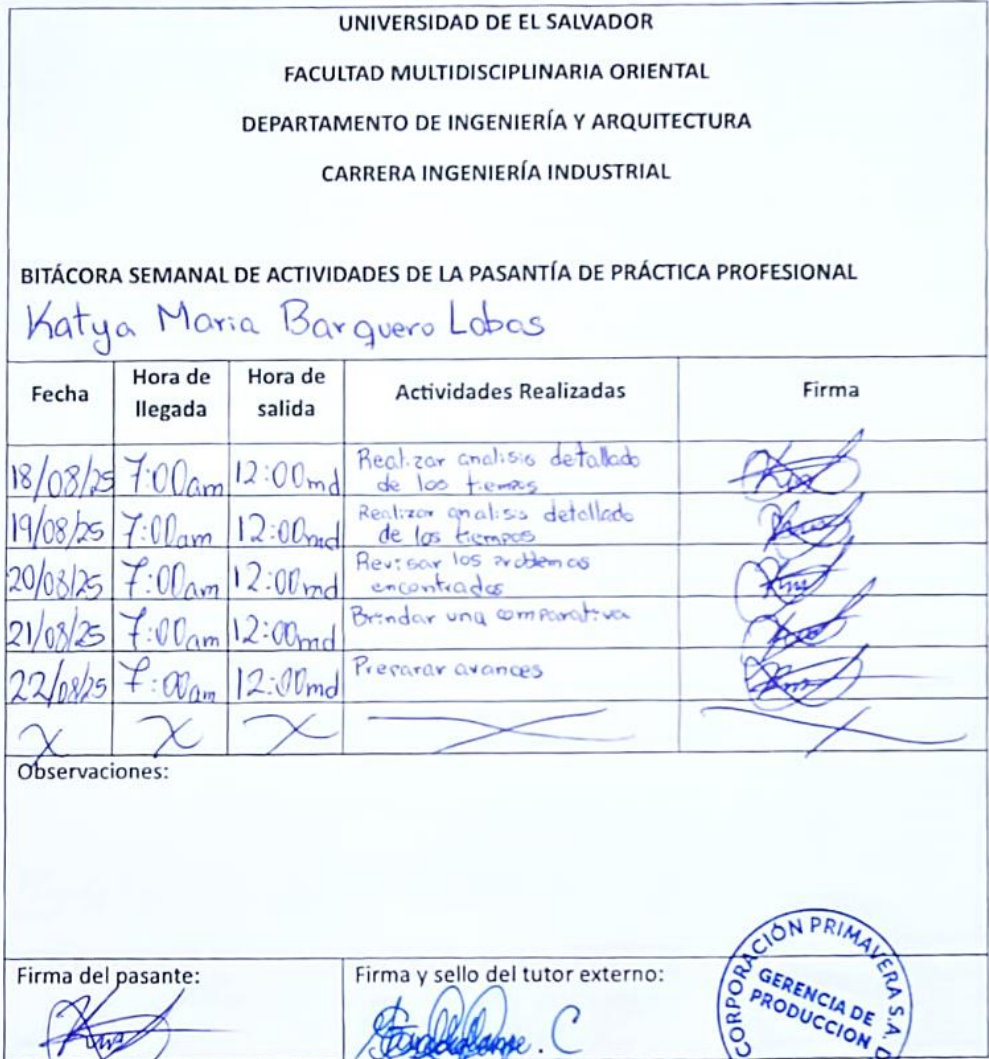 UNIVERSIDAD DE EL SALVADOR
FACULTAD MULTIDISCIPLINARIA ORIENTAL
DEPARTAMENTO DE INGENIERÍA Y ARQUITECTURA
CARRERA INGENIERÍA INDUSTRIAL
BITÁCORA SEMANAL DE ACTIVIDADES DE LA PASANTÍA DE PRÁCTICA PROFESIONAL
Katya Maria Barquero Lobos
Fecha Hora de llegada Hora de salida Actividades Realizadas Firma
18/08/25 7:00am 12:00md Realizar analisis detallado
de los tiempos
19/08/25 7:00am 12:00md Realizar analisis detallado
de los tiempos
20/08/25 7:00am 12:00md Revisar los problemas
encontrados
21/08/25 7:00am 12:00md Brindar una comparativa
22/08/25 7:00am 12:00md Preparar avances
X X X X X
Observaciones:
Firma del pasante: Firma y sello del tutor externo:
CORPORACIÓN PRIMAVERA S.A. D
GERENCIA DE
PRODUCCION